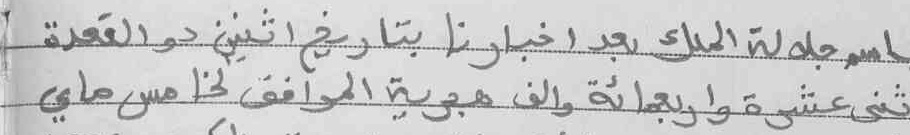 باسم جلالة الملك بعد اخبارنا بتاريخ اثنين ذو القعدة
ثنى عشرة واربعمائة والف هجرية الموافق لخامس ماي